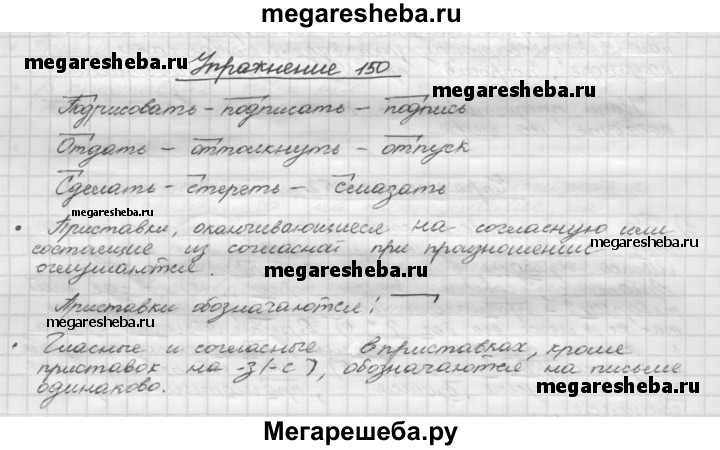 megaresheba.ru
Упражнение 150
megaresheba.ru
megaresheba.ru
Подрисовать – подписать – подпись
Отдать – оттолкнуть – отпуск
Сделать – стереть – смазать
megaresheba.ru
• Приставки, оканчивающиеся на согласную или
состоящие из согласной при произношении
megaresheba.ru
оглушаются.
megaresheba.ru
Приставки обозначаются:
megaresheba.ru
megaresheba.ru
• Гласные и согласные в приставках, кроме
приставок на -з (-с), обозначаются на письме
одинаково.
megaresheba.ru
Мегарешеба.ру